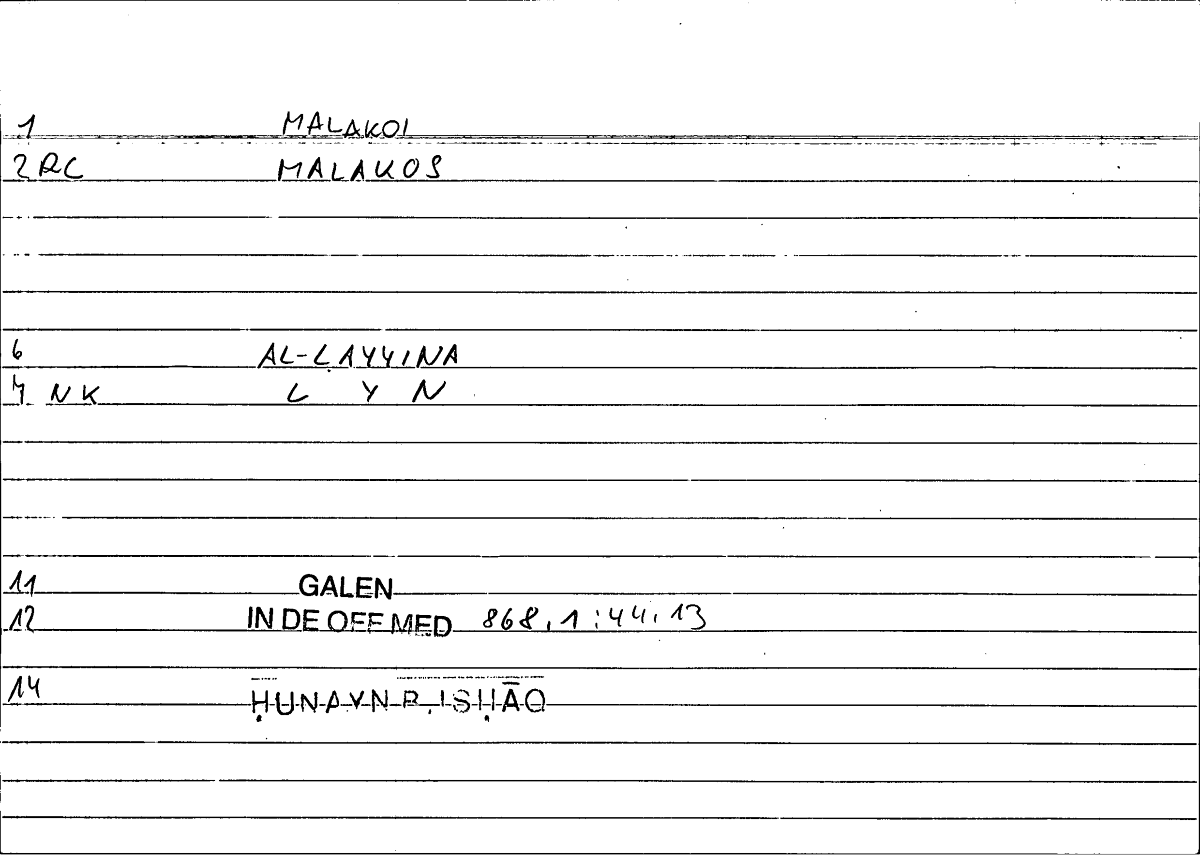 1 MALAKOI
2 RC MALAKOS
6 AL-LAYYINA
7 NK L Y N
11 GALEN
12 IN DE OFF MED 868,1:44,13
14 ḤUNAYN B. ISḤĀQ